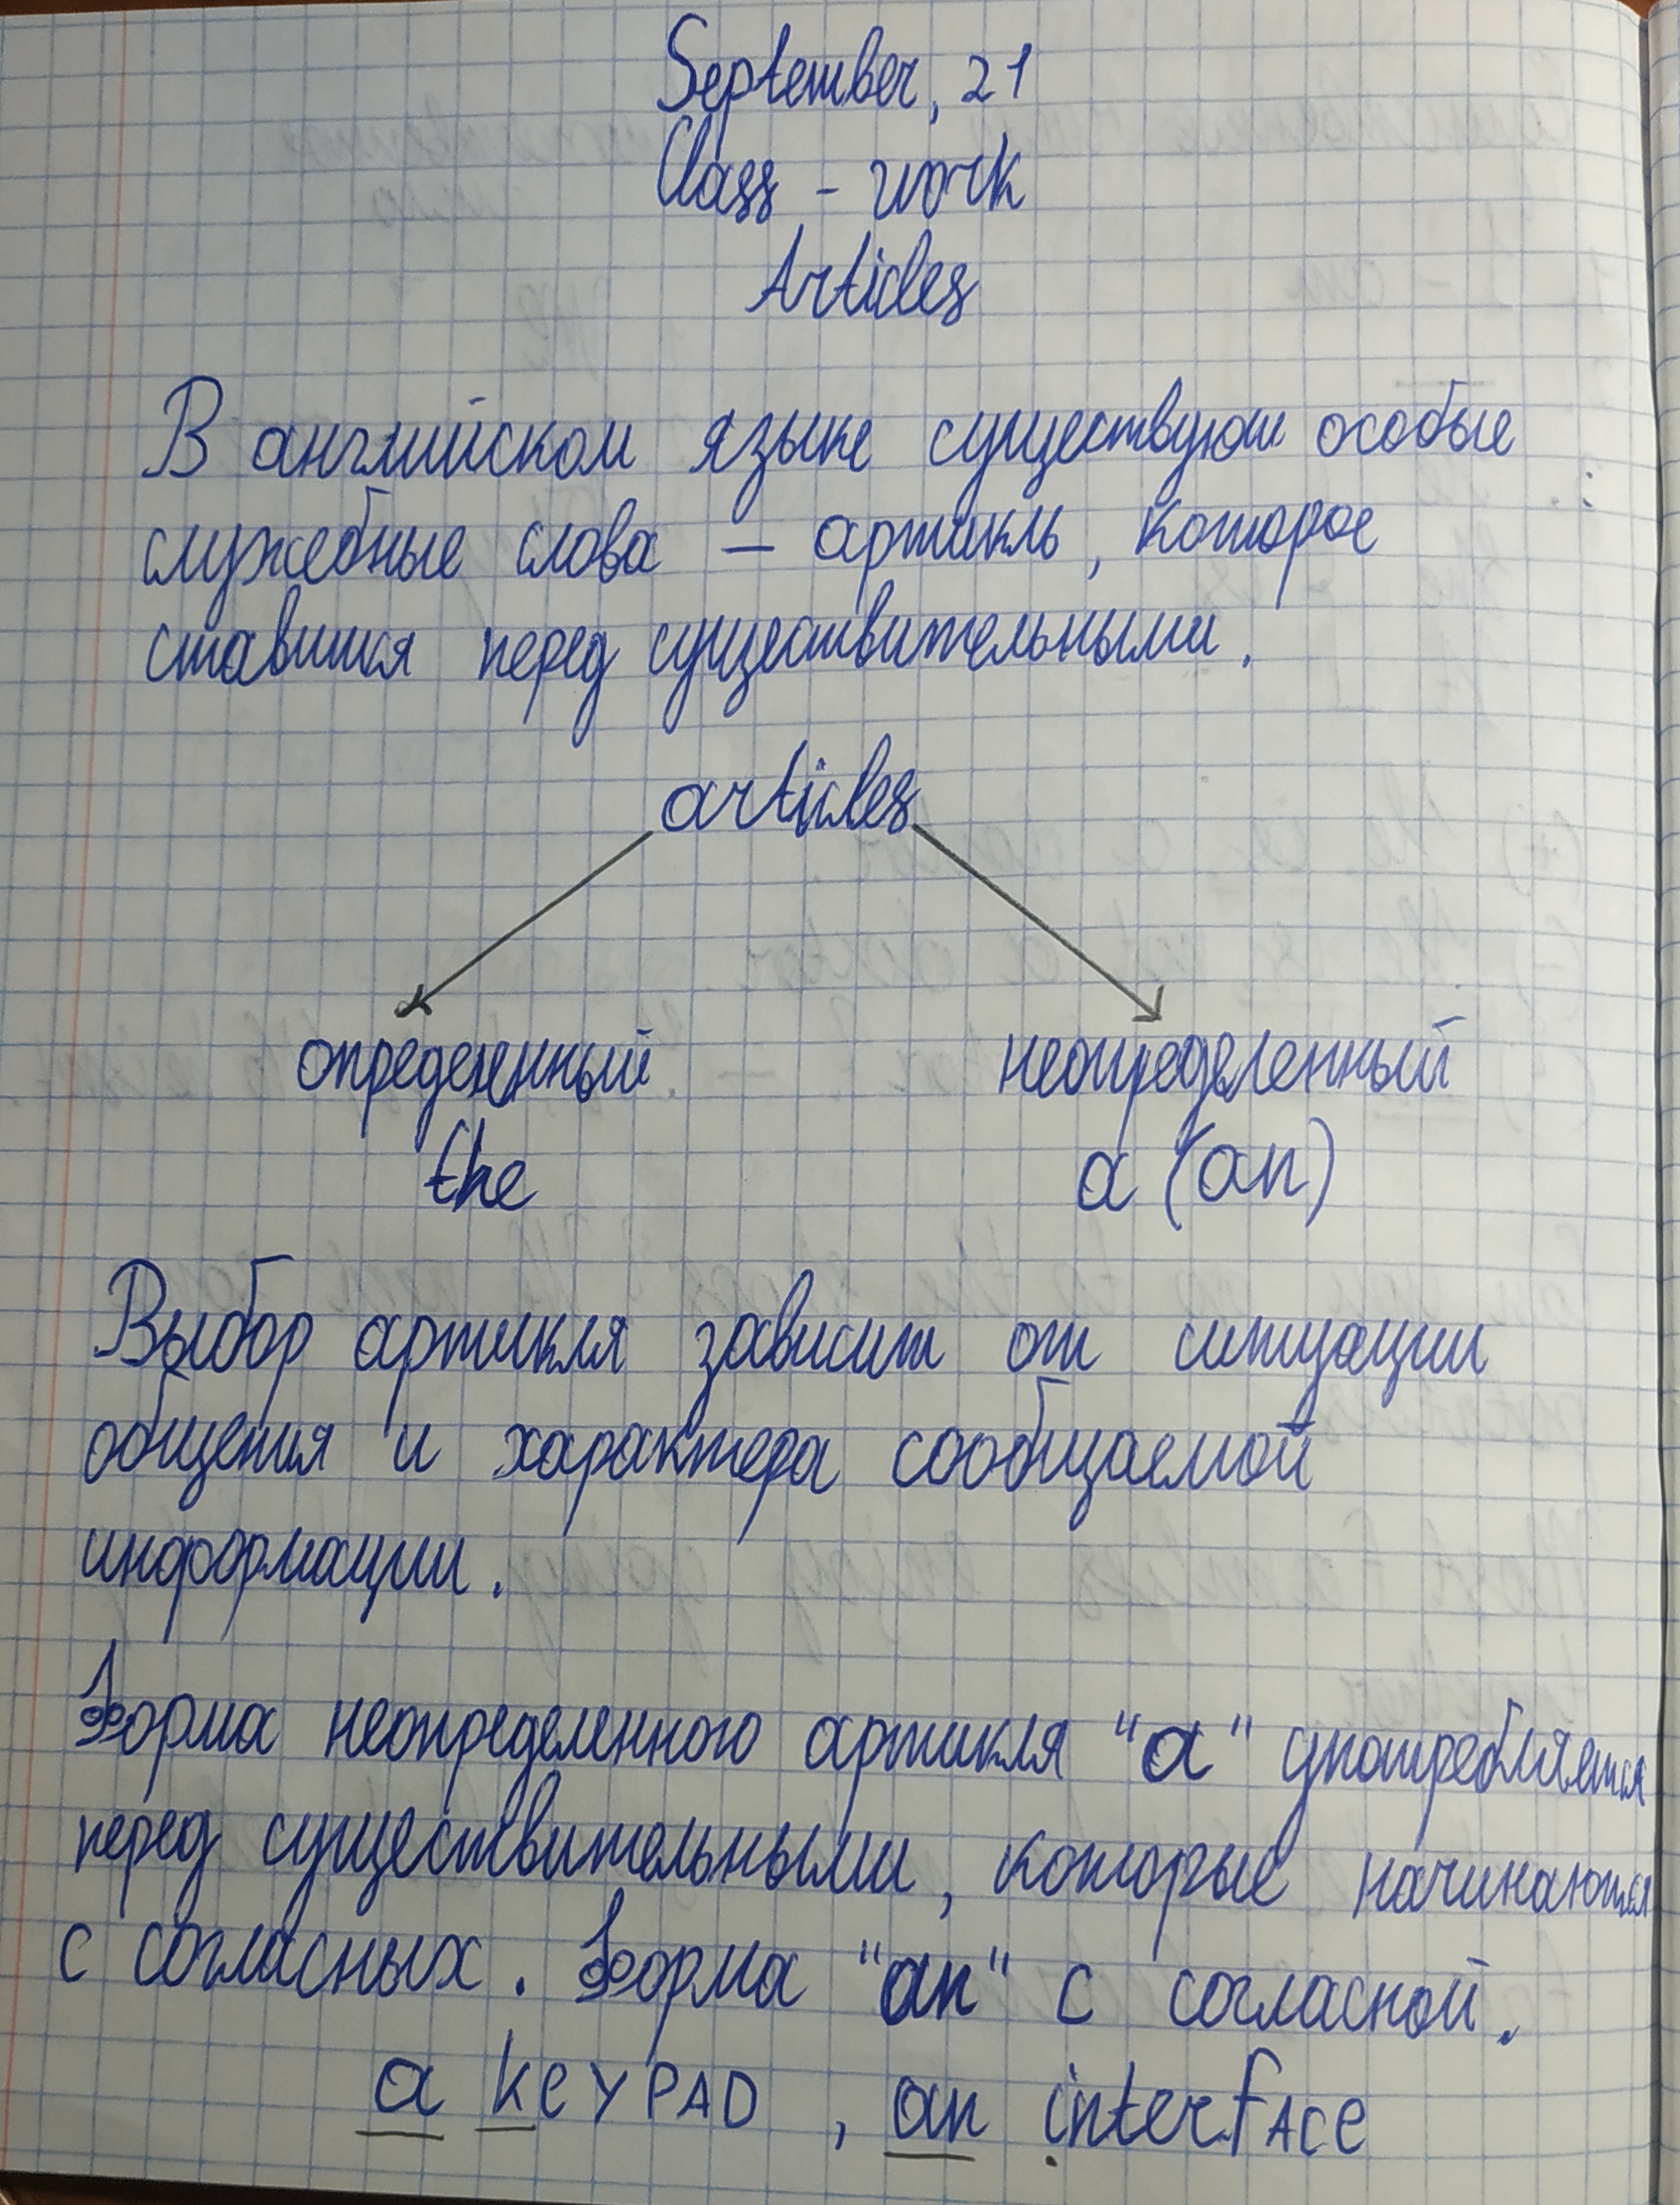 September, 21
Class - work
Articles
В английском языке существуют особые
служебные слова — артикль, которое
ставится перед существительными.
articles
определенный неопределенный
the a (an)
Выбор артикля зависит от ситуации
общения и характера сообщаемой
информации.
Форма неопределенного артикля "a" употребляется
перед существительными, которые начинаются
с согласных. Форма "an" с согласной.
a keyPAD, an interfAce